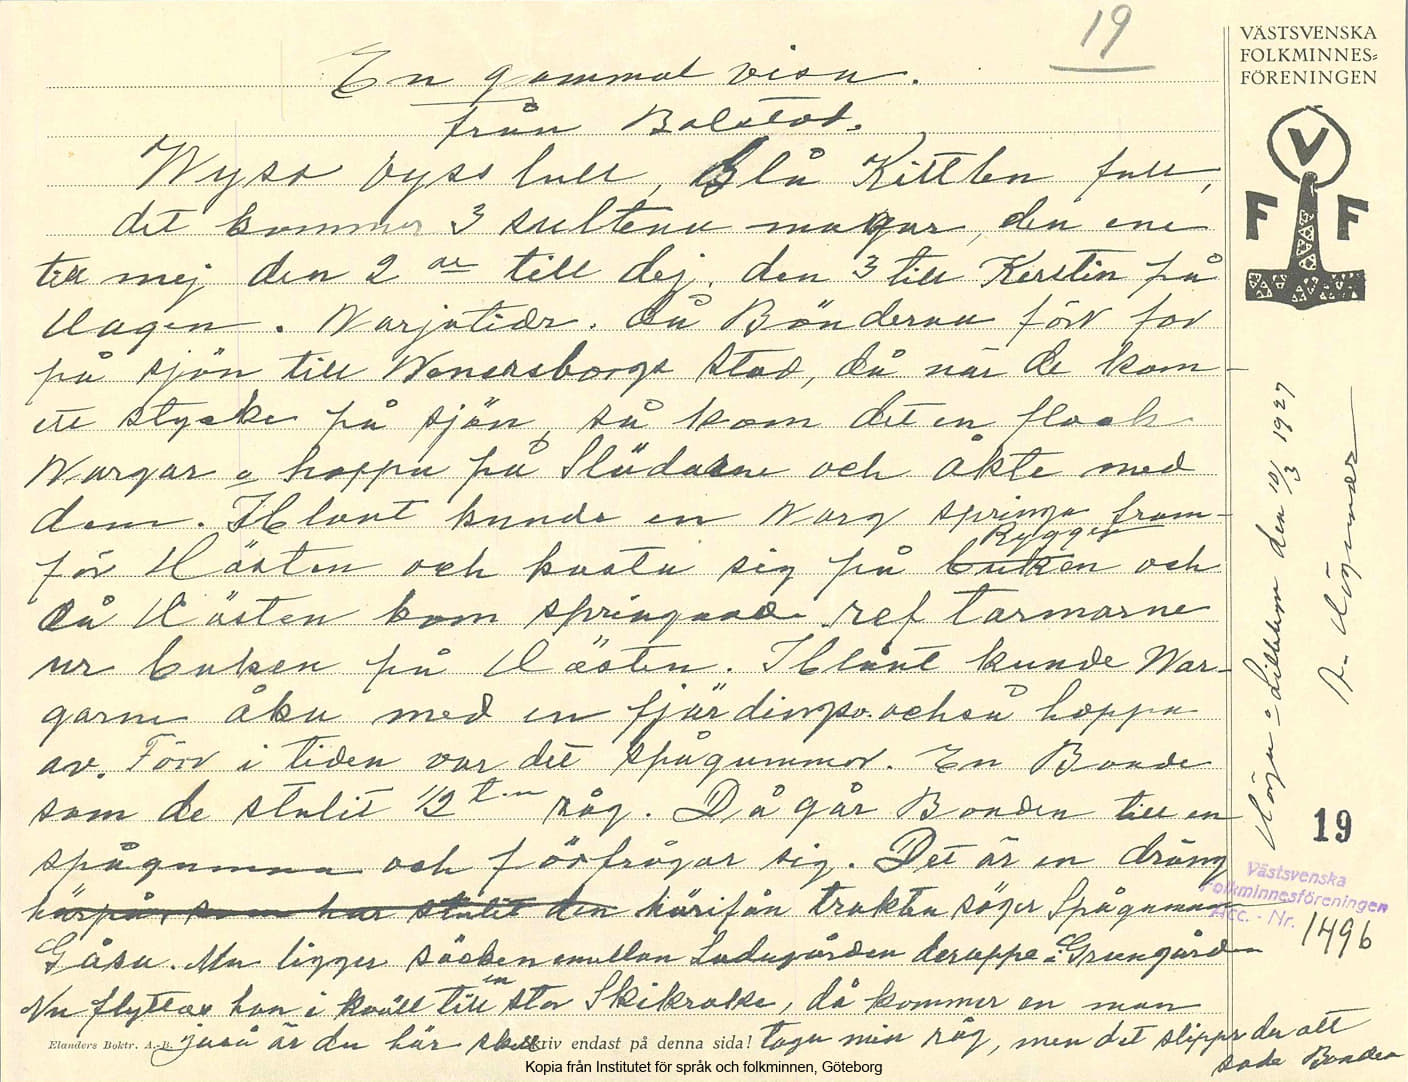 19
VÄSTSVENSKA
FOLKMINNES=
FÖRENINGEN
V
F F
En gammal visa.
från Bolstad.
Wyss vyss lull, Blå Kittlen full,
det kommer 3 sultena magar, den ene
till mej den 2 till dej, den 3 till Kerstin på
Hagen. Warjatider. Då Bönderna förr for
på sjön till Wenersborgs stad, då när de kom
ett stycke på sjön, så kom det en flock
Wargar o hoppa på Slädarne och åkte med
dem. Iblant kunde en Warg springa fram-
Ryggen
för Hästen och kasta sig på buken och
då Hästen kom springande ref tarmarne
ur buken på Hästen. Iblant kunde War-
garne åka med en fjärdingsv. också hoppa
av. Förr i tiden var det spågummor. En Bonde
som de stulit 1/2 råg. Då går Bonden till en
spågumma och förfrågar sig. Det är en dräng
härpå, som har stulit den härifån trakten säger Spåguman
Gåsa. Man ligger säcken emellan Ladugården deruppe i Grengården
Nu flyttas han i kväll till en stor Skikrake, då kommer en man
jaså är du här skall taga min råg, men det slipper du allt
sade Bonden
Elanders Boktr. A.-B. Skriv endast på denna sida!
den 10/3 1927
19
Västsvenska
Folkminnesföreningen
Acc. - Nr. 1496
Kopia från Institutet för språk och folkminnen, Göteborg